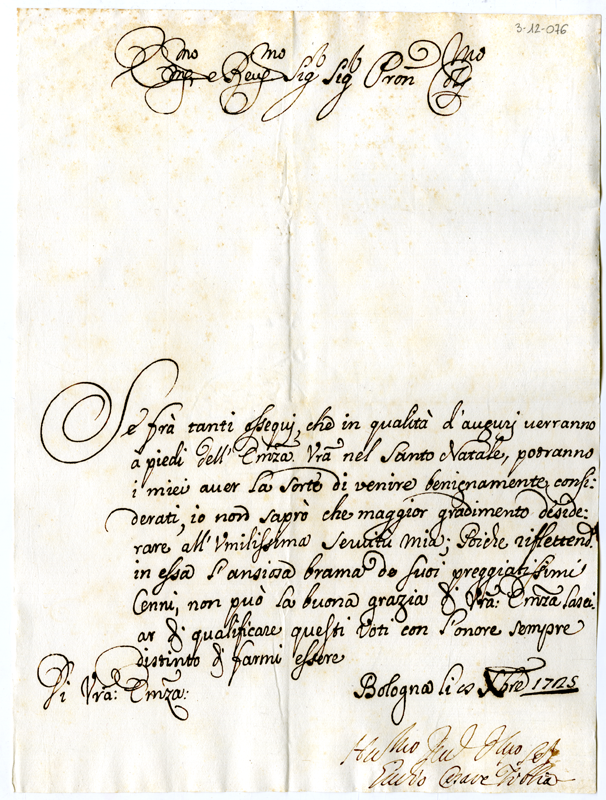 3-12-076
Em̃o e Reu̅mo Sigr Sigr Pron̅ Colmo
Se frà tanti ossequj, che in qualità d'augurj verranno
a piedi dell' Em̃za Vrã nel Santo Natale, potranno
i miei auer la sorte di venire benignamente consi-
derati, io non saprò che maggior gradimento deside-
rare all' Vmilissima Seruitù mia; Poiche riflettend
in essa l'ansiosa brama de suoi preggiatissimi
Cenni, non può la buona grazia di Vrã: Em̃za lasci-
ar di qualificare questi Voti con l'onore sempre
distinto di farmi essere
Di Vrã: Em̃za:
Bologna li Xbre 1725